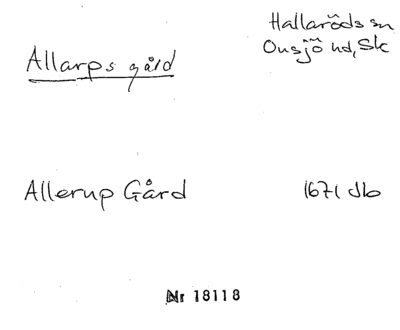 Hallaröds sn
Onsjö hd, Sk
Allarps gård
Allerup Gård 1671 Jb
Nr 18118